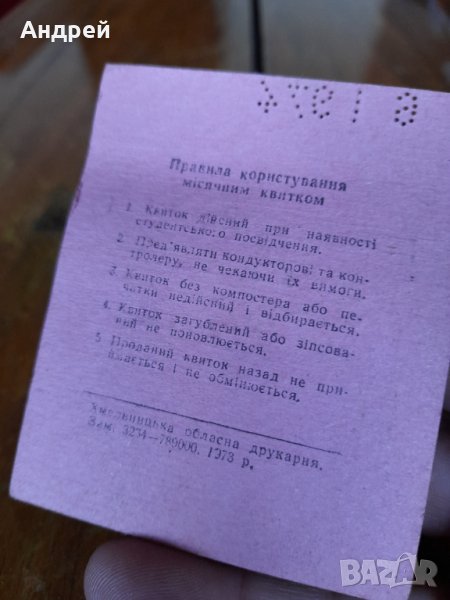 Андрей
Правила користування
місячним квитком
1. Квиток дійсний при наявності
студентського посвідчення.
2. Пред'являти кондукторові та кон-
тролеру, не чекаючи їх вимоги.
3. Квиток без компостера або пе-
чатки недійсний і відбирається.
4. Квиток загублений або зіпсова-
ний не поновлюється.
5. Проданий квиток назад не при-
ймається і не обмінюється.
Хмельницька обласна друкарня.
Зам. 3234—789000. 1973 р.
BAZAR